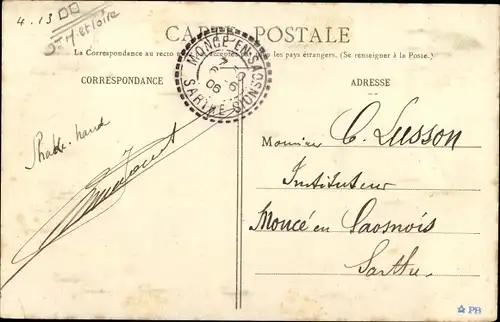 4.13
CARTE POSTALE
La Correspondance au recto pas les pays étrangers. (Se renseigner à la Poste.)
CORRESPONDANCE
ADRESSE
MONCE-EN-SAOSNOIS
SARTHE
06
Shake-hand
Monsieur C. Lusson
Instituteur
Moncé en Saosnois
Sarthe.
PB